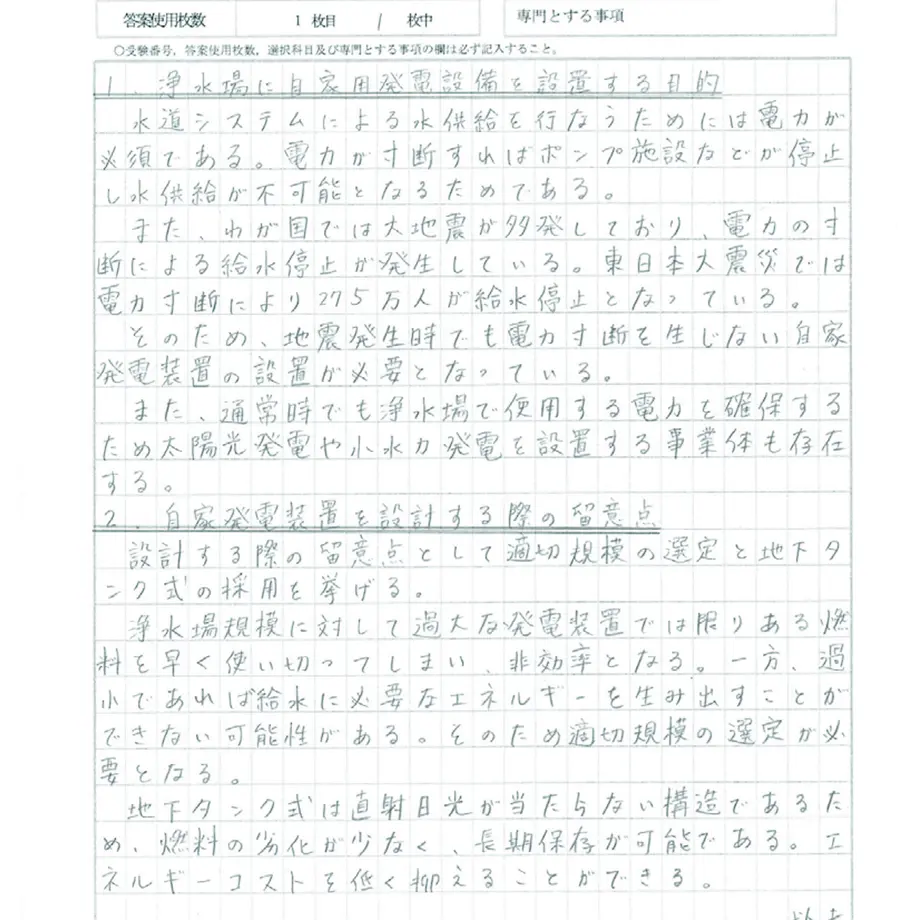 答案使用枚数 1 枚目 / 枚中 専門とする事項
○受験番号、答案使用枚数、選択科目及び専門とする事項の欄は必ず記入すること。
1．浄水場に自家用発電設備を設置する目的
水道システムによる水供給を行なうためには電力が
必須である。電力が寸断すればポンプ施設などが停止
し水供給が不可能となるためである。
また、わが国では大地震が多発しており、電力の寸
断による給水停止が発生している。東日本大震災では
電力寸断により275万人が給水停止となっている。
そのため、地震発生時でも電力寸断を生じない自家
発電装置の設置が必要となっている。
また、通常時でも浄水場で使用する電力を確保する
ため太陽光発電や小水力発電を設置する事業体も存在
する。
2．自家発電装置を設計する際の留意点
設計する際の留意点として適切規模の選定と地下タ
ンク式の採用を挙げる。
浄水場規模に対して過大な発電装置では限りある燃
料を早く使い切ってしまい、非効率となる。一方、過
小であれば給水に必要なエネルギーを生み出すことが
できない可能性がある。そのため適切規模の選定が必
要となる。
地下タンク式は直射日光が当たらない構造であるた
め、燃料の劣化が少なく、長期保存が可能である。エ
ネルギーコストを低く抑えることができる。
以上